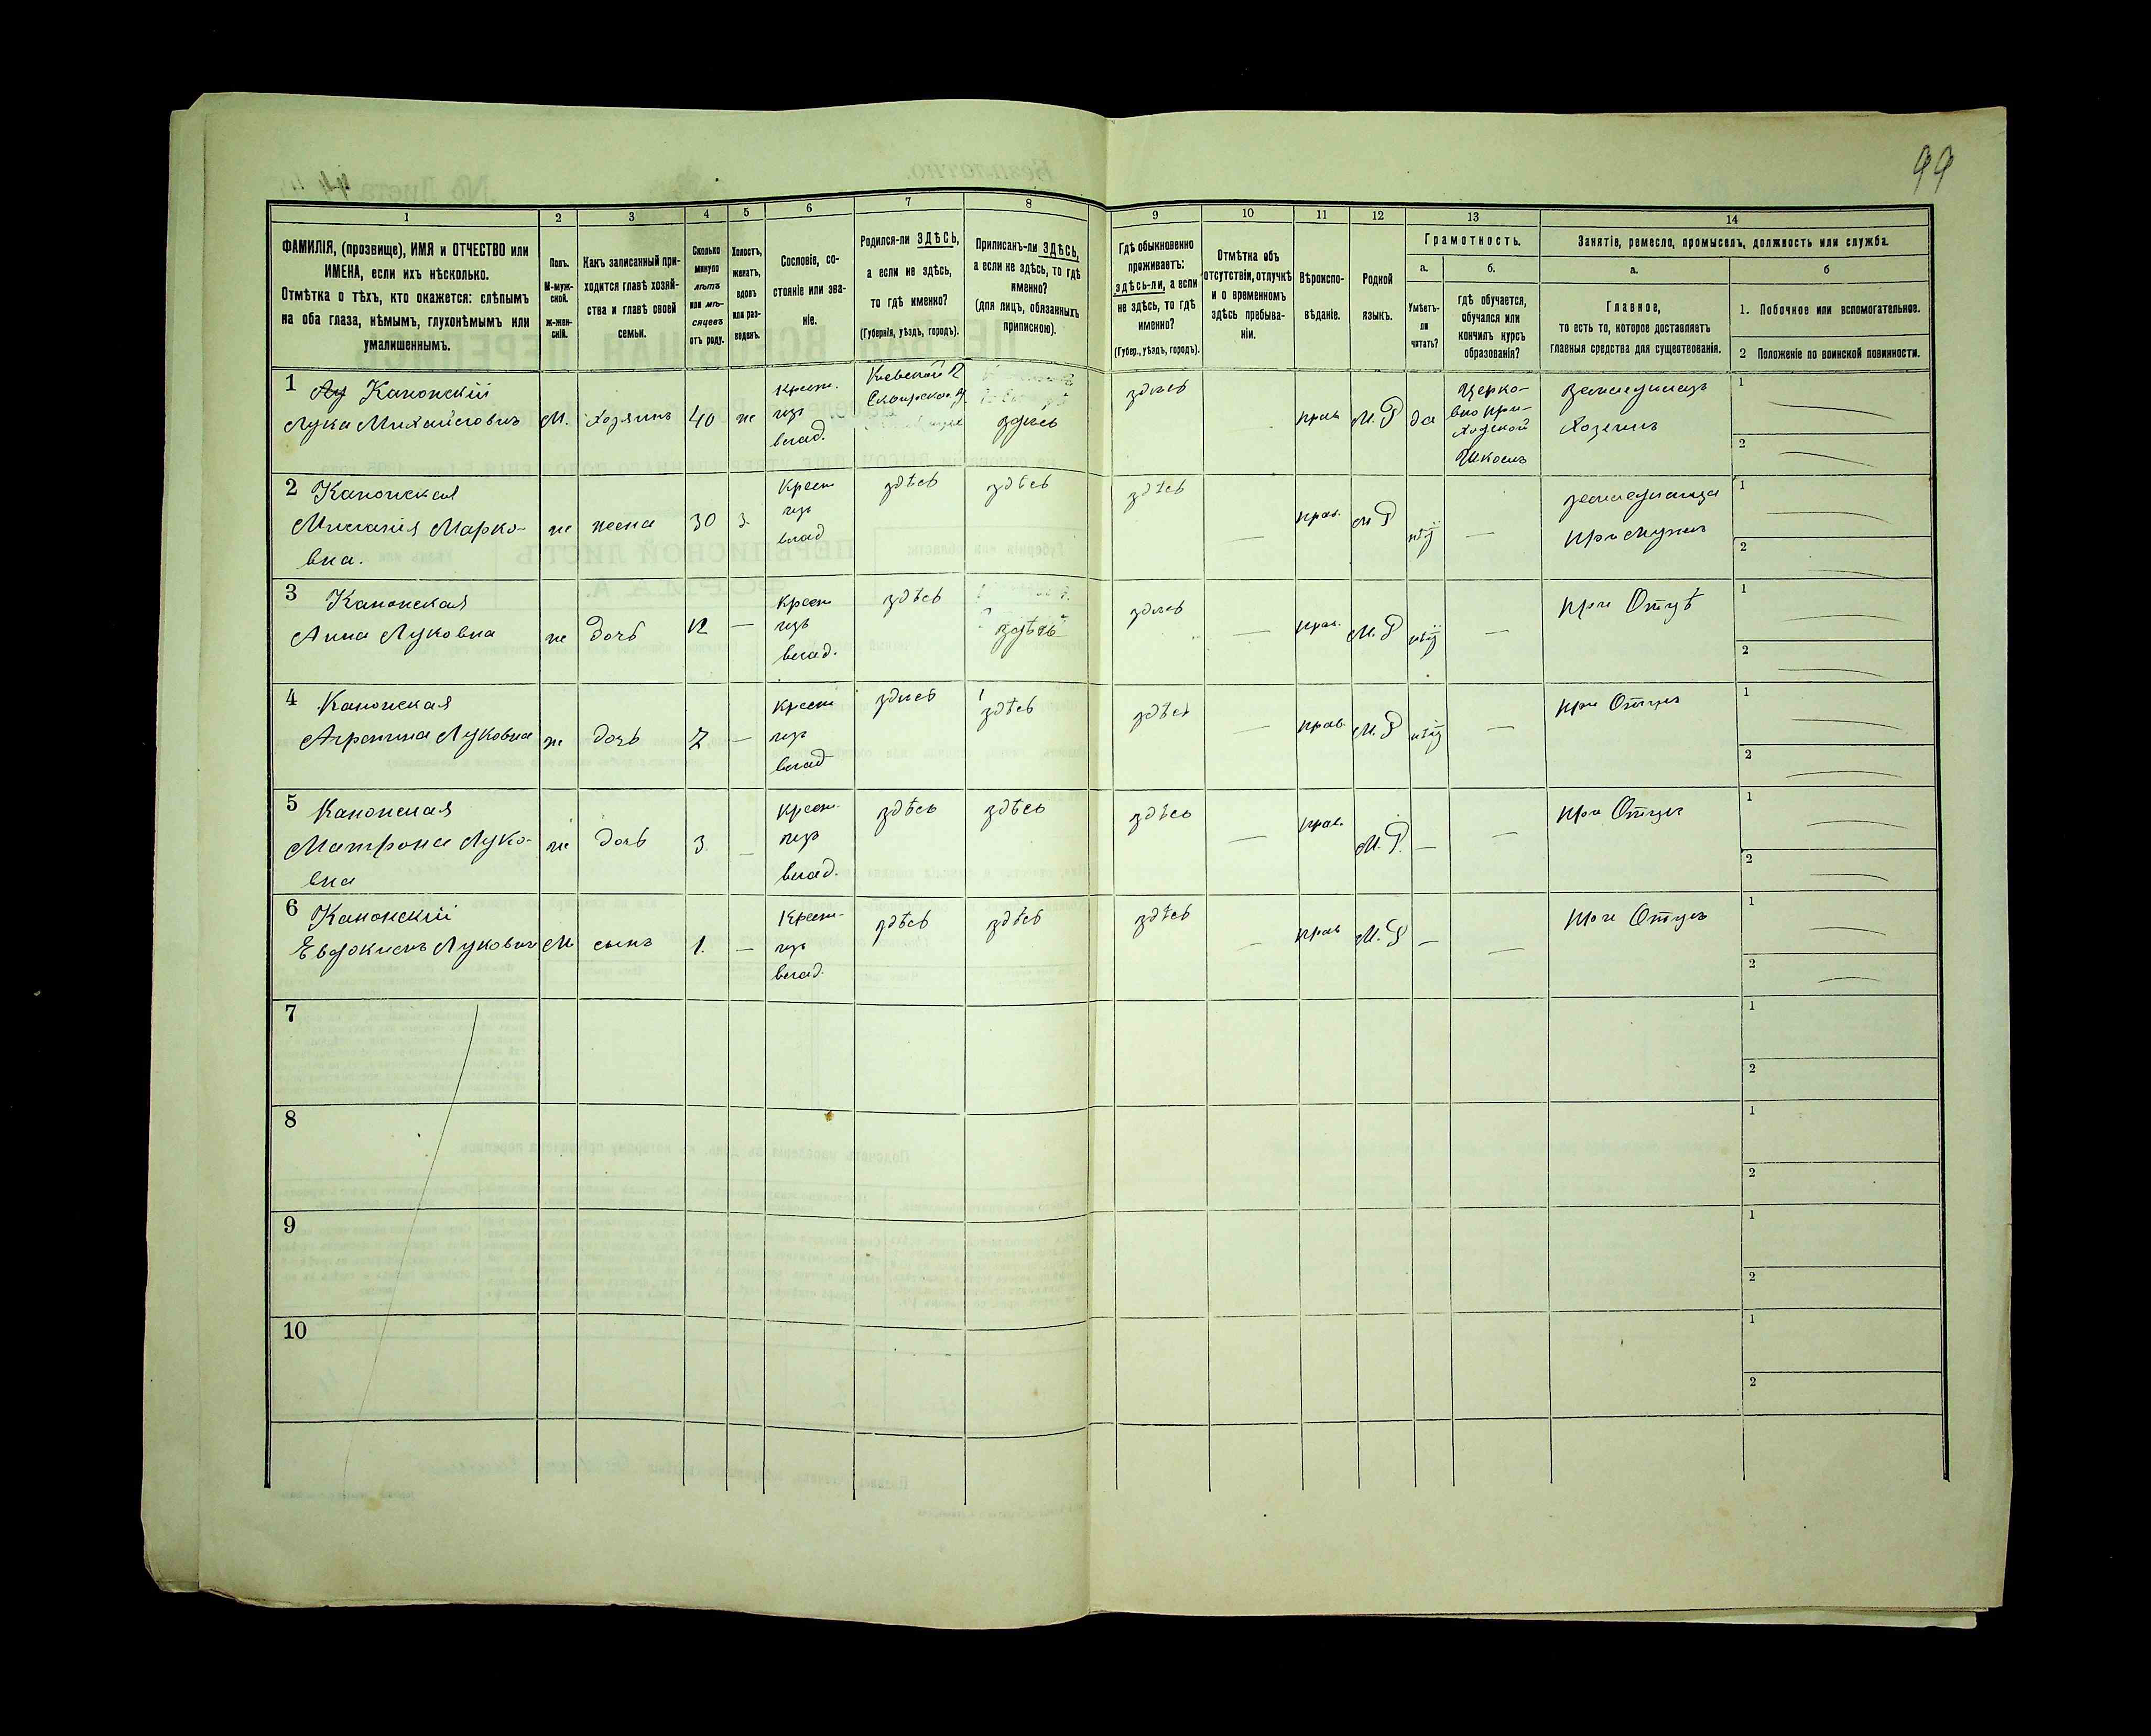 99
1
2
3
4
5
6
7
8
9
10
11
12
13
14
ФАМИЛІЯ, (прозвище), ИМЯ и ОТЧЕСТВО или
ИМЕНА, если ихъ нѣсколько.
Отмѣтка о тѣхъ, кто окажется: слѣпымъ
на оба глаза, нѣмымъ, глухонѣмымъ или
умалишеннымъ.
Полъ.
М-муж-
ской.
Ж-жен-
скій.
Какъ записанный при-
ходится главѣ хозяй-
ства и главѣ своей
семьи.
Сколько
минуло
лѣтъ
или мѣ-
сяцевъ
отъ роду.
Холостъ,
женатъ,
вдовъ
или раз-
веденъ.
Сословіе, со-
стояніе или зва-
ніе.
Родился-ли ЗДѢСЬ,
а если не здѣсь,
то гдѣ именно?
(Губернія, уѣздъ, городъ).
Приписанъ-ли ЗДѢСЬ,
а если не здѣсь, то гдѣ
именно?
(для лицъ, обязанныхъ
припискою).
Гдѣ обыкновенно
проживаетъ:
здѣсь-ли, а если
не здѣсь, то гдѣ
именно?
(Губер., уѣздъ, городъ).
Отмѣтка объ
отсутствіи, отлучкѣ
и о временномъ
здѣсь пребыва-
ніи.
Вѣроиспо-
вѣданіе.
Родной
языкъ.
Грамотность.
а.
б.
Умѣетъ-
ли
читать?
гдѣ обучается,
обучался или
кончилъ курсъ
образованія?
Занятіе, ремесло, промыселъ, должность или служба.
а.
б
Главное,
то есть то, которое доставляетъ
главныя средства для существованія.
1. Побочное или вспомогательное.
2 Положеніе по воинской повинности.
1 Канонскій
Лука Михайловичъ
М.
Хозяинъ
40
ж
крест.
изъ
влад.
Кіевской Г
Сквирскаго у.
здѣсь
здѣсь
прав
М. Р
да
Церко-
вно при-
ходской
Школѣ
земледѣлецъ
Хозяинъ
1
2
2 Канонская
Меланія Марко-
вна.
ж
жена
30
з.
крест
изъ
влад
здѣсь
здѣсь
здѣсь
—
прав.
М Р
нѣтъ
—
земледѣлица
при Мужѣ
1
2
3 Канонская
Анна Луковна
ж
дочь
12
—
крест
изъ
влад.
здѣсь
здѣсь
здѣсь
—
прав.
М. Р
нѣтъ
—
при Отцѣ
1
2
4 Канонская
Агрепина Луковна
ж
дочь
7
—
крест
изъ
влад
здѣсь
здѣсь
здѣсь
—
прав.
М. Р
нѣтъ
—
при Отцѣ
1
2
5 Канонская
Матрона Луко-
вна
ж
дочь
3.
—
крест.
изъ
влад.
здѣсь
здѣсь
здѣсь
—
прав.
М. Р.
—
—
при Отцѣ
1
2
6 Канонскій
Евдокимъ Луковичъ
М
сынъ
1.
—
Крест-
изъ
влад.
здѣсь
здѣсь
здѣсь
—
прав
М. Р
—
—
при Отцѣ
1
2
7
1
2
8
1
2
9
1
2
10
1
2